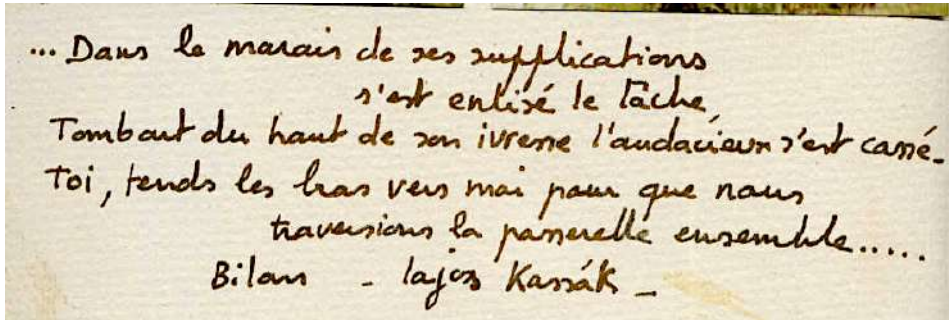 ... Dans le marais de ses supplications
s'est enlisé le lâche
Tombant du haut de son ivresse l'audacieux s'est cassé_
Toi, tends les bras vers moi pour que nous
traversions la passerelle ensemble.....
Bilan _ lajos Kassák _